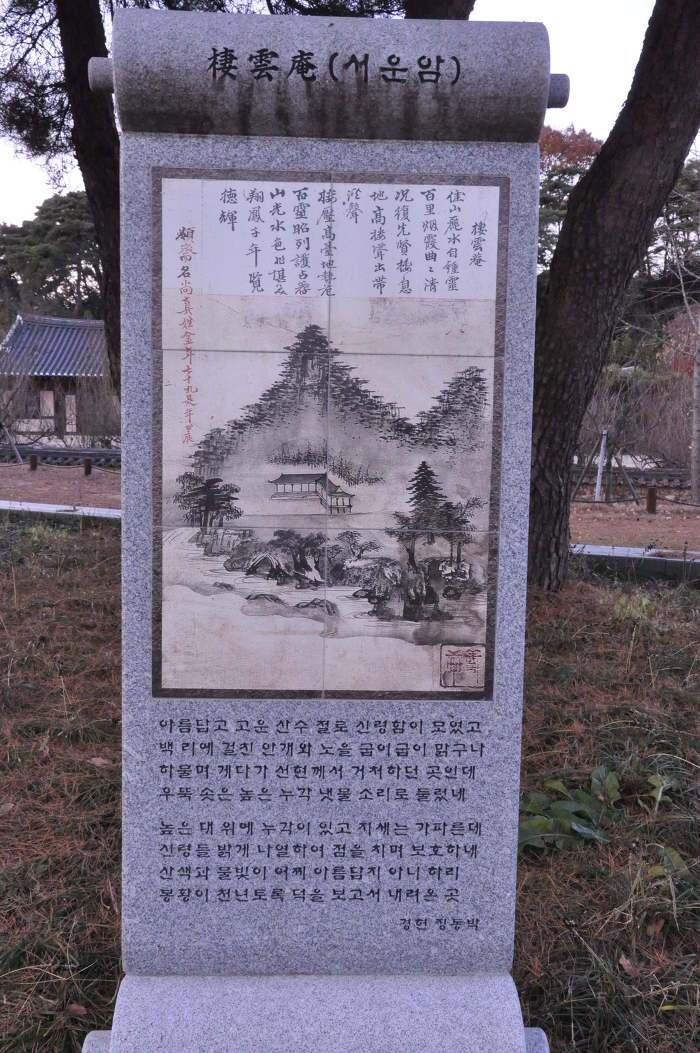 棲雲庵(서운암)
棲雲庵
佳山麗水自鍾靈
百里烟霞曲〻清
况復先賢棲息
地高樓聳出帶
聲
樓壓高臺地勢危
百靈昭列護占蓍
山光水色
翔鳳千年覽
德輝
아름답고 고운 산수 절로 신령함이 모였고
백 리에 걸친 안개와 노을 굽이굽이 맑구나
하물며 게다가 선현께서 거처하던 곳인데
우뚝 솟은 높은 누각 냇물 소리로 둘렀네
높은 대 위에 누각이 있고 지세는 가파른데
신령들 밝게 나열하여 점을 치며 보호하네
산색과 물빛이 어찌 아름답지 아니 하리
봉황이 천년토록 덕을 보고서 내려온 곳
경헌 정동박